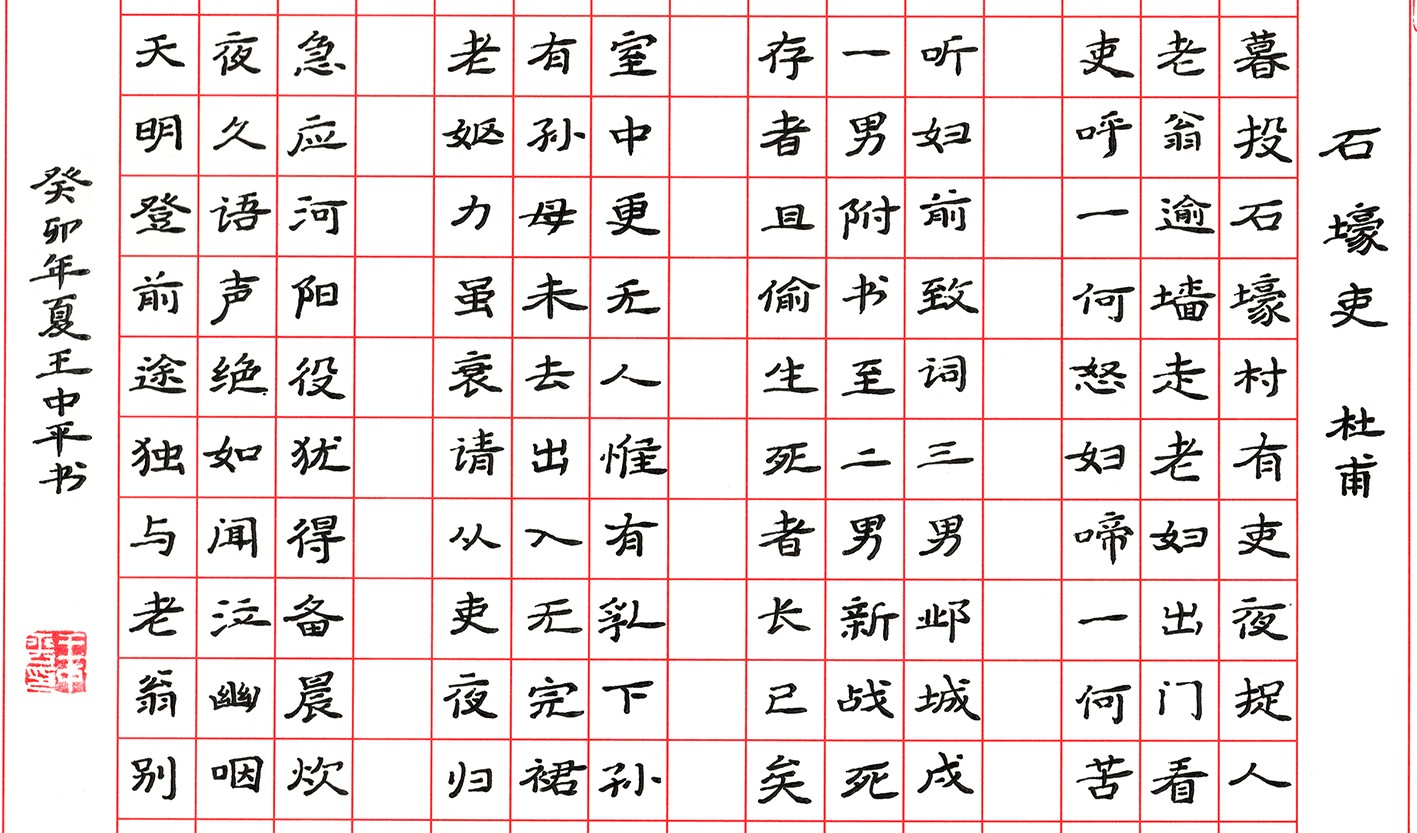 石壕吏 杜甫
暮投石壕村有吏夜捉人
老翁逾墙走老妇出门看
吏呼一何怒妇啼一何苦
听妇前致词三男邺城戍
一男附书至二男新战死
存者且偷生死者长已矣
室中更无人惟有乳下孙
有孙母未去出入无完裙
老妪力虽衰请从吏夜归
急应河阳役犹得备晨炊
夜久语声绝如闻泣幽咽
天明登前途独与老翁别
癸卯年夏王中平书
王中平印